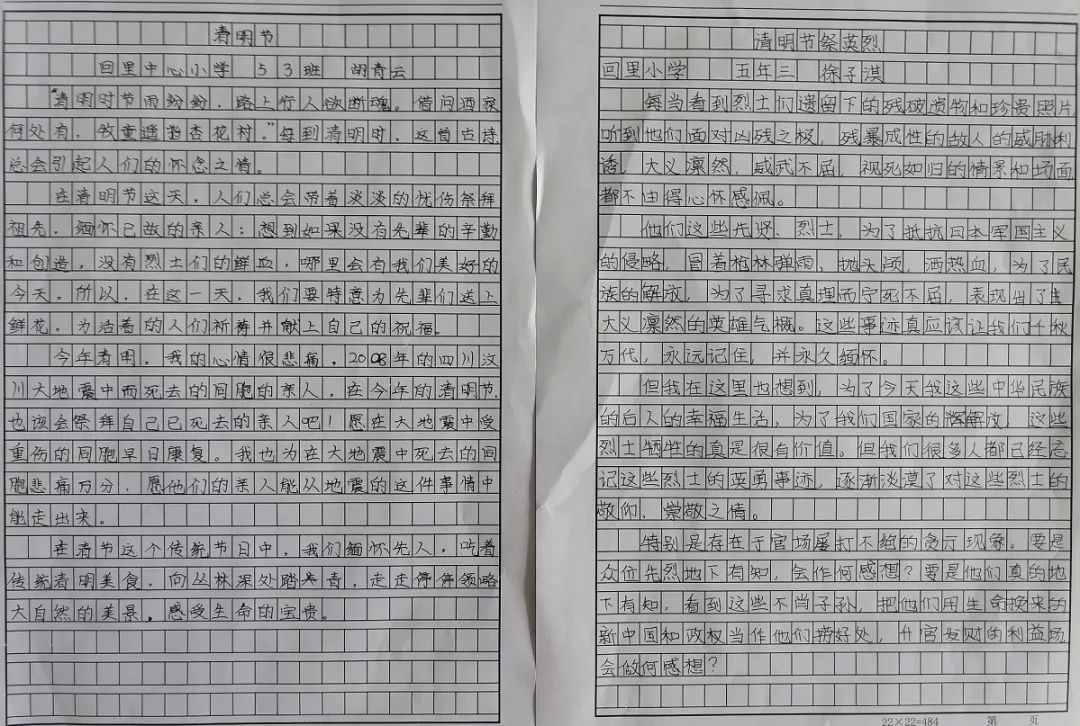 清明节
回里中心小学 53班 胡青云
“清明时节雨纷纷，路上行人欲断魂。借问酒家
何处有，牧童遥指杏花村。”每到清明时，这首古诗
总会引起人们的怀念之情。
在清明节这天，人们总会带着淡淡的忧伤祭拜
祖先，缅怀已故的亲人；想到如果没有先辈的辛勤
和创造，没有烈士们的鲜血，哪里会有我们美好的
今天。所以，在这一天，我们要特意为先辈们送上
鲜花，为活着的人们祈祷并献上自己的祝福。
今年清明，我的心情很悲痛，2008年的四川汶
川大地震中而死去的同胞的亲人，在今年的清明节，
也该会祭拜自己已死去的亲人吧！愿在大地震中受
重伤的同胞早日康复。我也为在大地震中死去的同
胞悲痛万分，愿他们的亲人能从地震的这件事情中
能走出来。
在清节这个传统节日中，我们缅怀先人，吃着
传统清明美食，向丛林深处踏青，走走停停领略
大自然的美景，感受生命的宝贵。
清明节祭英烈
回里小学 五年三 徐子淇
每当看到烈士们遗留下的残破遗物和珍贵照片，
听到他们面对凶残之极，残暴成性的敌人的威胁利
诱，大义凛然，威武不屈，视死如归的情景和场面
都不由得心怀感佩。
他们这些先贤、烈士，为了抵抗日本军国主义
的侵略，冒着枪林弹雨、抛头颅，洒热血，为了民
族的解放，为了寻求真理而宁死不屈，表现出了
大义凛然的英雄气概。这些事迹真应该让我们千秋
万代，永远记住，并永久缅怀。
但我在这里也想到，为了今天我这些中华民族
的后人的幸福生活，为了我们国家的解放，这些
烈士牺牲的真是很有价值。但我们很多人都已经忘
记这些烈士的英勇事迹，逐渐淡漠了对这些烈士的
敬仰，崇敬之情。
特别是存在于官场屡打不绝的贪污现象。要是
众位先烈地下有知，会作何感想？要是他们真的地
下有知，看到这些不肖子孙，把他们用生命换来的
新中国和政权当作他们捞好处，升官发财的利益场
会做何感想？
22×22=484 第 页